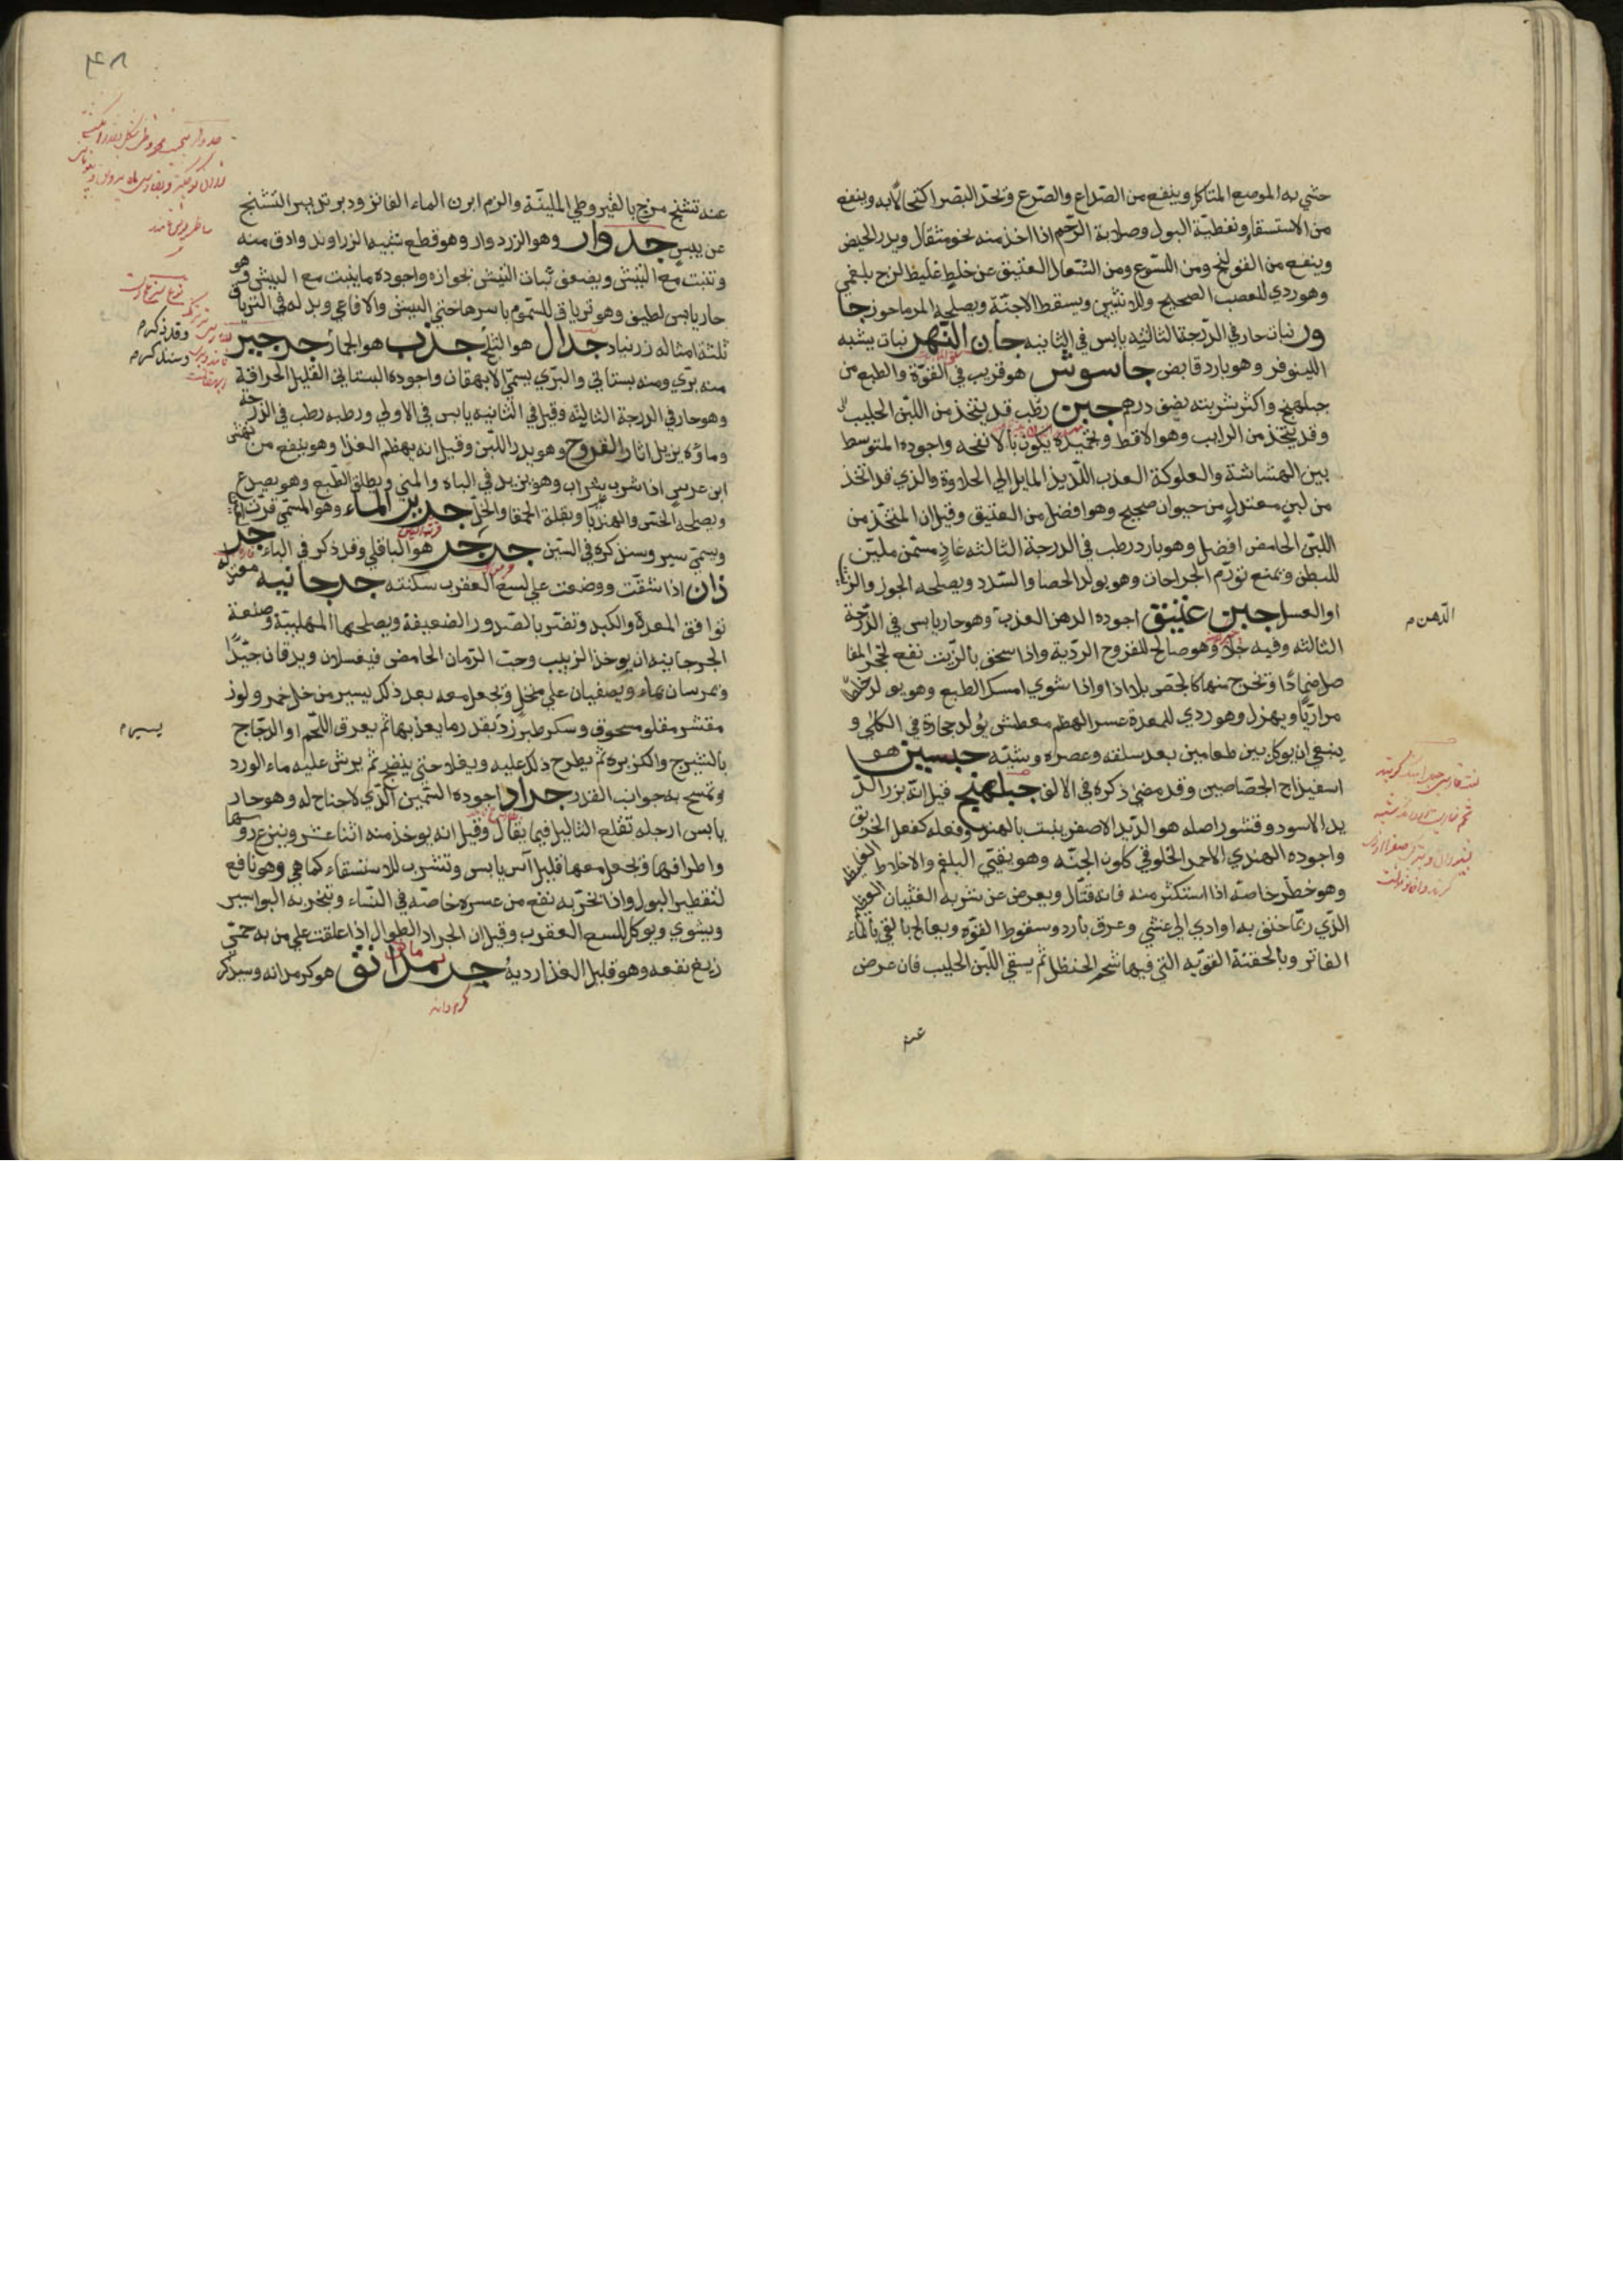 حشي به الموضع المتاكل وينفع من الصداع والصرع وتحدّ البصر اكتحالا به وينفع
من الاستسقاء وتغطية البول وصلابة الرّحم اذا اخذ منه نحو مثقال ويدر الحيض
وينفع من القولنج ومن اللسوع ومن السّعال العتيق عن خلط غليظ لزج بلغمي
وهو ردي للعصب الصحيح وللانثيين ويسقط الاجنّة ويصلحه المرماحوز جا
ور نبات حار في الدّرجة الثالثيه يابس في الثانيه جان النّهر نبات يشبه
اللينوفر وهو بارد قابض جاسوش هو قريب في القوّة والطبع من
جبلهنج واكثر شربته نصف درهم جبن رطب قد يتّخذ من اللبن الحليب
وقد يتّخذ من الرايب وهو الاقط وتجميده يكون بالانفحه واجوده المتوسط
بين الهشاشة والعلوكة العذب اللّذيذ المايل الي الحلاوة والذي قد اتخذ
من لبن معتدل من حيوان صحيح وهو افضل من العتيق وقيل ان المتّخذ من
اللبن الحامض افضل وهو بارد رطب في الدرجة الثالثه غاذٍ مسمّن مليّن
للبطن وتمنع تورّم الجراحات وهو يولد الحصا والسّدد ويصلحه الجوز والزيت
او العسل جبن عتيق اجوده الدهن العذب وهو حار يابس في الدّرجة
الدّهن م
الثالثه وفيه جلاء وهو صالح للقروح الرديّة واذا سحق بالزّيت نفع لتحجر المفا
صل ضمادًا وتخرج منها كالجصّ بلا اذا واذا شوي امسك الطبع وهو يولد خلطًا
مراريًّا ويهزل وهو ردي للمعدة عسر الهضم معطش يولد حجارة في الكلي و
ينبغي ان يوكل بين طعامين بعد سلقه وعصره وشيّه جبسين هو ا
اسفيداج الجصّاصين وقد مضي ذكره في الالف جبلهنج قيل انّه بزر التر
بد الاسود وقشور اصله هو التربد الاصفر ينبت بالهند وفعله كفعل الخربق
واجوده الهندي الاحمر الخلوقي كلون الجنّه وهو ينقّي البلغم والاخلاط الغليظه
وهو خطر خاصّة اذا استكثر منه فانه قتّال ويعرض عن شربه الغثيان القوي
الذّي ربّما خنق به او ادي الي غشي وعرق بارد وسقوط القوّه ويعالج بالقي بالماء
الفاتر وبالحقنة القويّه التي فيها شحم الحنظل ثم يسقي اللبن الحليب فان عرض
عنه
۴۸
عنه تشنج مرخ بالقيروطي المليّنة والزم ابزن الماء الفاتر ودبر تدبير التشنج
عن يبس جدوار وهو الزردوار وهو قطع تشبه الزراوند وادق منه
وتنبت مع البيش ويضعف نبات البيش بجوازه واجوده ما ينبت مع البيش وهو
حار يابس لطيف وهو ترياق للسّموم باسرها حتي البيش والافاعي وبدله في الترياق
ثلثة امثاله زرنباد جدال هو البلح جذب هو الجمار جرجير
وقد ذكر م
منه برّي ومنه بستاني والبرّي يسمّي الايهقان واجوده البستاني القليل الحرافة
وسنذكره م
وهو حار في الدرجة الثالثه وقيل في الثانيه يابس في الاولي ورطبه رطب في الدرجه
وماؤه يزيل اثار القروح وهو يدر اللّبن وقيل انه يهضم الغذا وهو ينفع من نهش
ابن عرس اذا شرب بشراب وهو يزيد في الباه والمني ويطلق الطّبع وهو يصدع
ويصلحه الخس والهندبا وبقلة الحمقا والخلّ جرير الماء وهو المسمّي قرّت العين
ويسمّي سير وسنذكره في السّين جرجر هو الباقلي وقد ذكر في الباء جر
ذان اذا شقّت ووضعت علي لسع العقرب سكنته جرجانيه معتدله
توافق المعدة والكبد وتضر بالصّدور الضعيفة ويصلحها المهلبيّة وصنعة
الجرجانيه ان يوخذ الزبيب وحب الرّمان الحامض فيغسلان ويدقان جيّدًا
وتمرسان بماء ويصفيان علي منخل وتجعل معه بعد ذلك يسير من خل خمر ولوز
يسير م
مقشر مقلو مسحوق وسكر طبرزد بقدر ما يعذبها ثم يعرق اللّحم او الدجاج
بالشيرج والكزبرة ثم يطرح ذلك عليه ويغلا حتي ينضج ثم يرش عليه ماء الورد
وتمسح به جوانب القدر جراد اجوده السّمين الّذي لا جناح له وهو حار
يابس ارجله تقلع الثاليل فيما يقال وقيل انه يوخذ منه اثنا عشر وينزع روسها
واطرافها وتجعل معها قليل اس يابس وتشرب للاستسقاء كما هي وهو نافع
لتقطير البول واذا تخّر به نفع من عسره خاصّة في النّساء وتبخر به البواسير
ويشوي ويوكل للسع العقرب وقيل ان الجراد الطوال اذا علقت علي من به حمّي
ربع نفعه وهو قليل الغذا رديه جرمدانق هو كرمدانه وسيذكر
كرم دانه